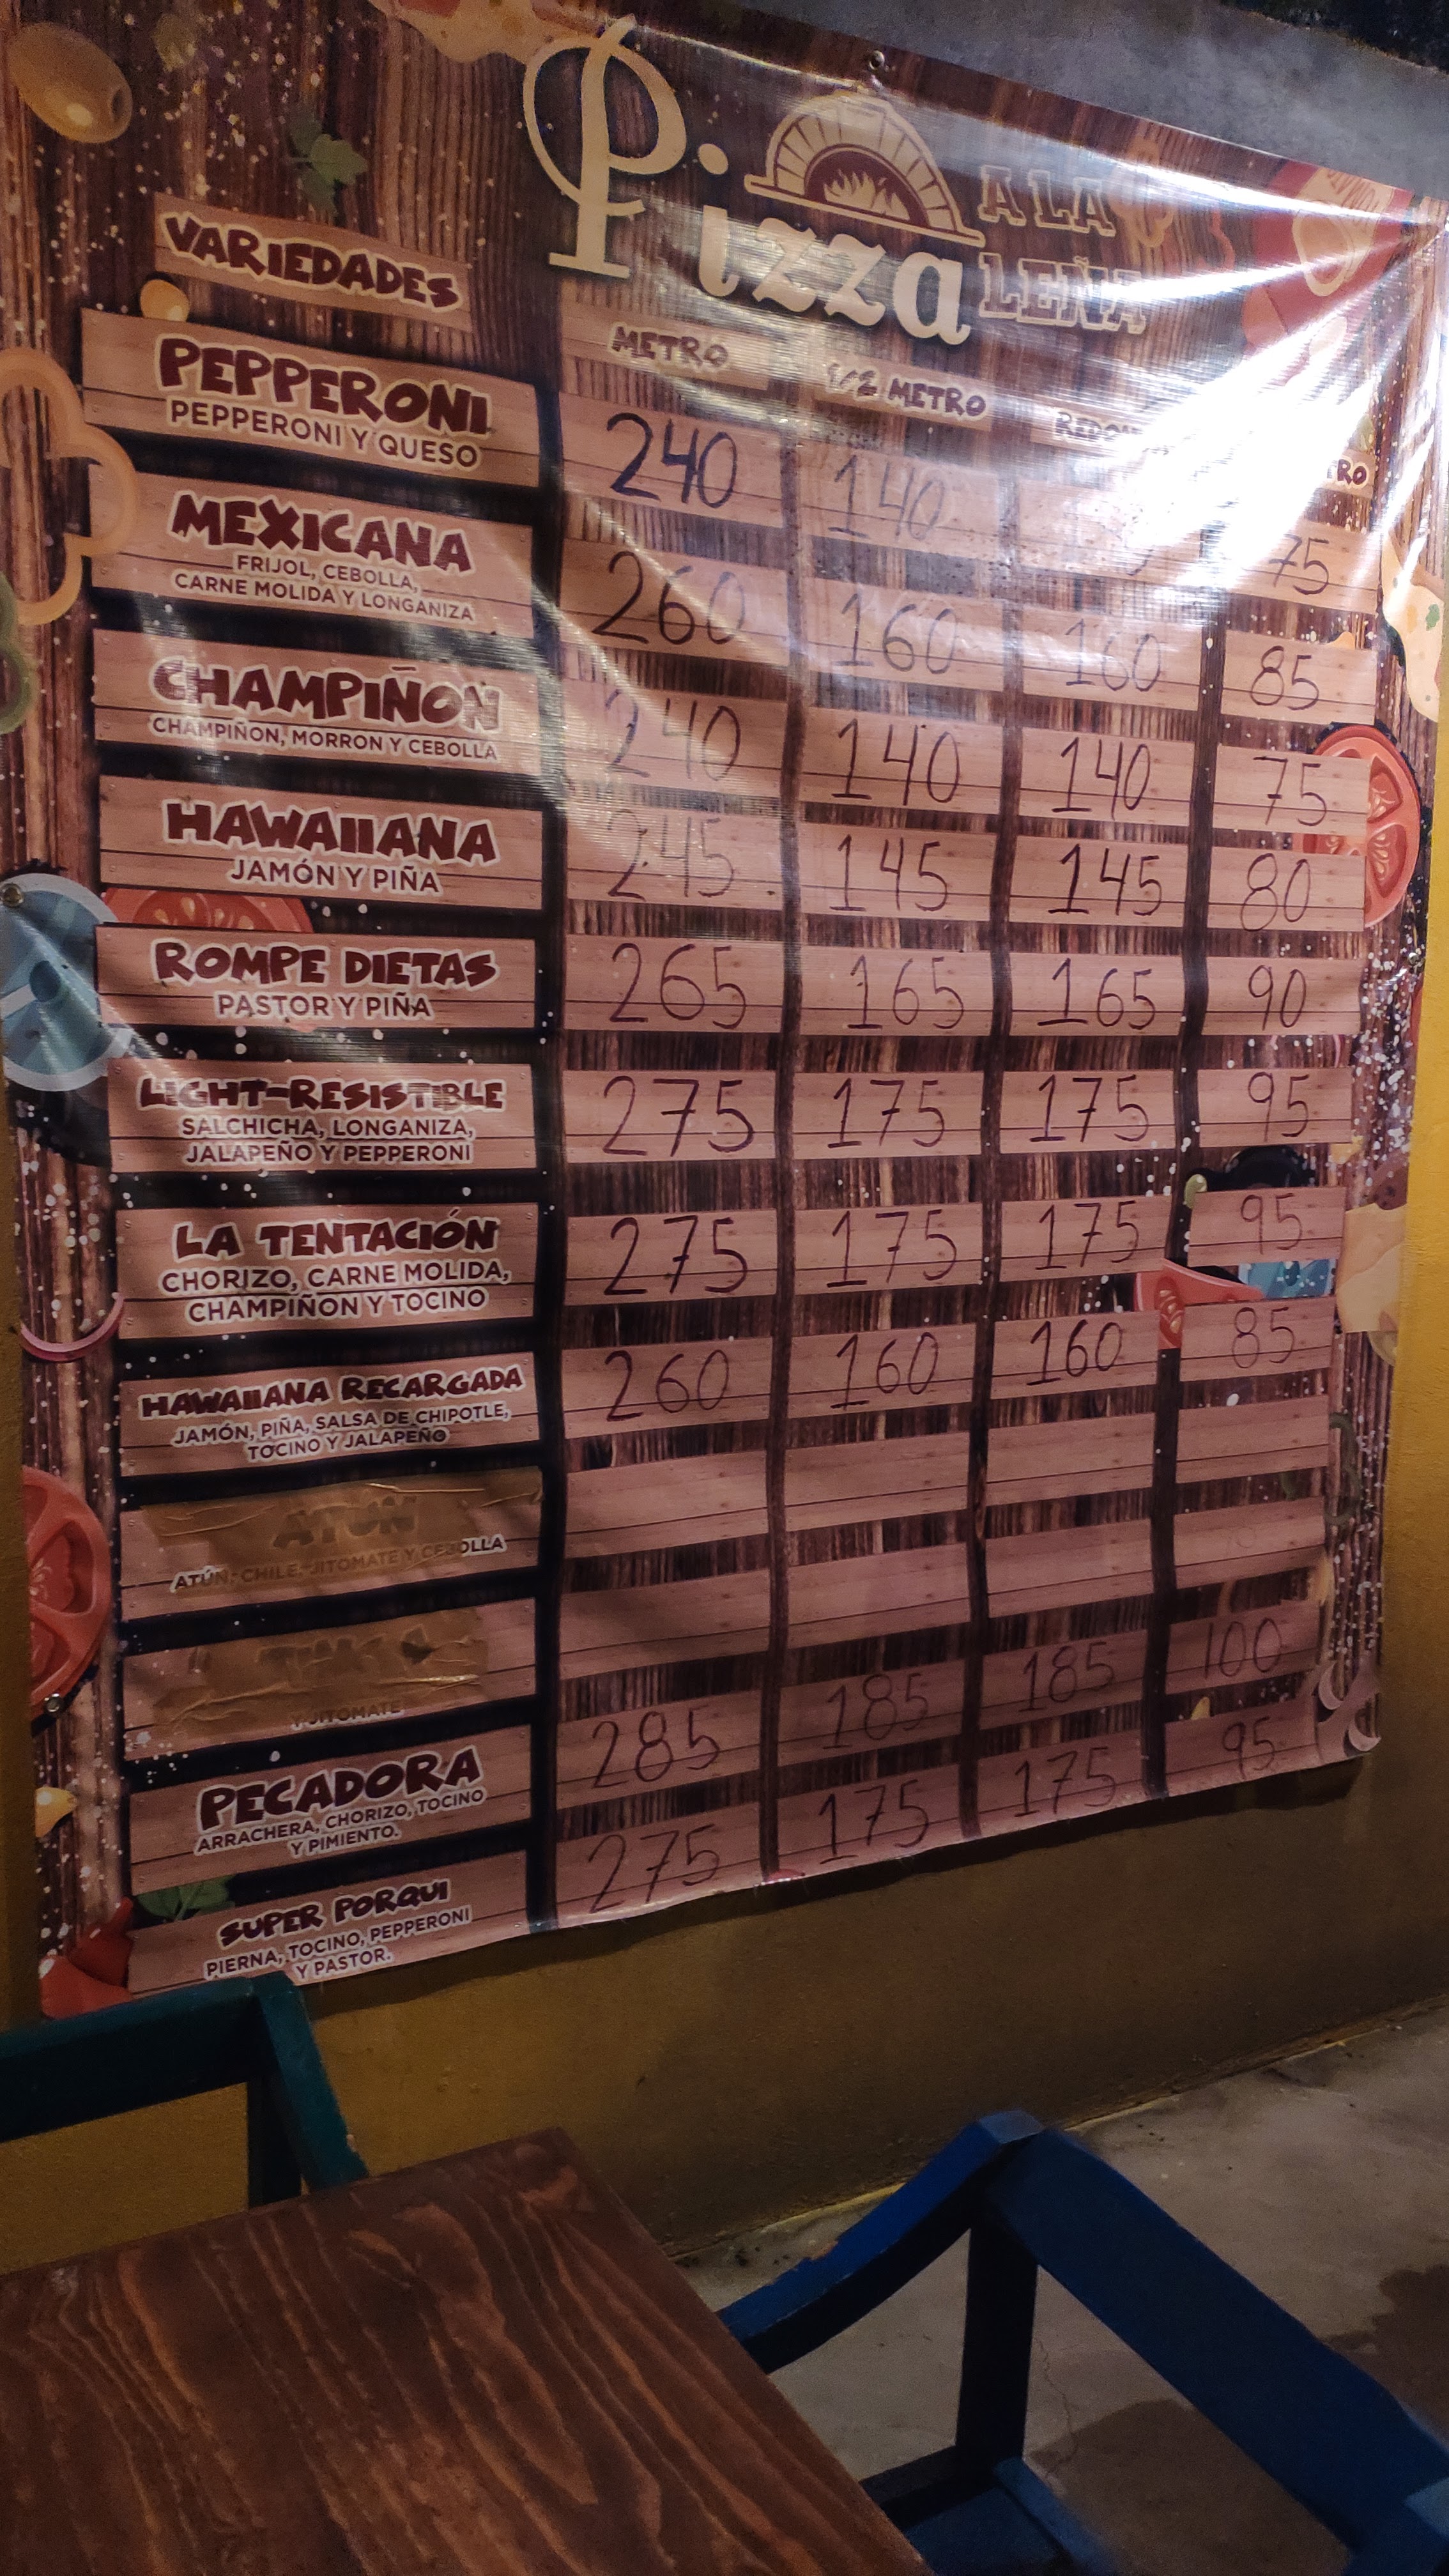 Pizza A LA LEÑA
VARIEDADES METRO 1/2 METRO
PEPPERONI 240 140 75
PEPPERONI Y QUESO
MEXICANA 260 160 160 85
FRIJOL, CEBOLLA,
CARNE MOLIDA Y LONGANIZA
CHAMPIÑON 240 140 140 75
CHAMPIÑON, MORRON Y CEBOLLA
HAWAIIANA 245 145 145 80
JAMÓN Y PIÑA
ROMPE DIETAS 265 165 165 90
PASTOR Y PIÑA
LIGHT-RESISTIBLE 275 175 175 95
SALCHICHA, LONGANIZA,
JALAPEÑO Y PEPPERONI
LA TENTACIÓN 275 175 175 95
CHORIZO, CARNE MOLIDA,
CHAMPIÑON Y TOCINO
HAWAIIANA RECARGADA 260 160 160 85
JAMÓN, PIÑA, SALSA DE CHIPOTLE,
TOCINO Y JALAPEÑO
ATÚN
ATÚN, CHILE, JITOMATE Y CEBOLLA
Y JITOMATE
PECADORA 285 185 185 100
ARRACHERA, CHORIZO, TOCINO
Y PIMIENTO.
SUPER PORQUI 275 175 175 95
PIERNA, TOCINO, PEPPERONI
Y PASTOR.